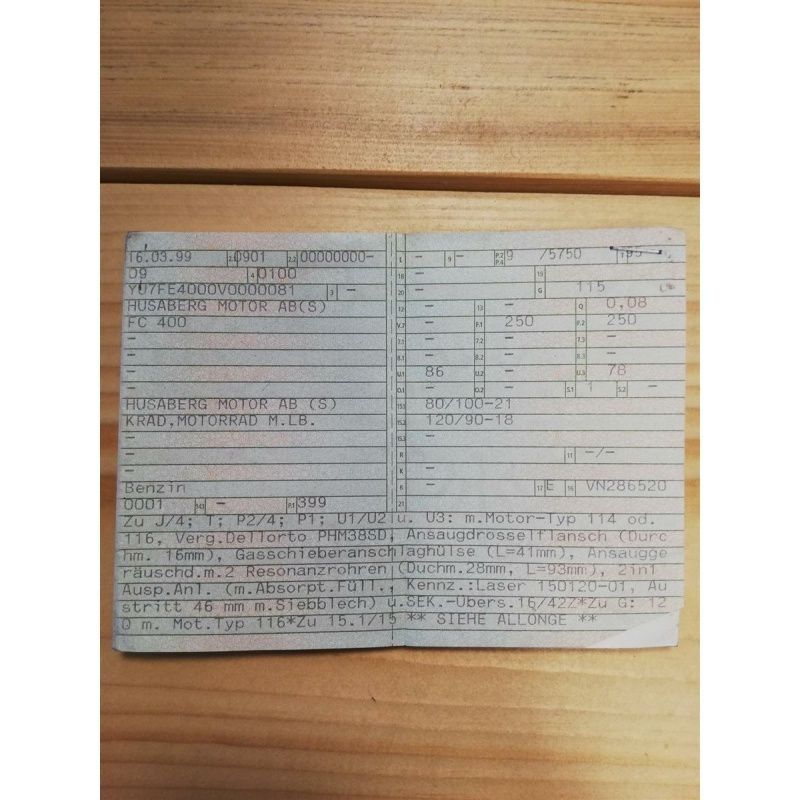 16.03.99 2.1 0901 2.2 00000000- L - 9 - P.2 P.4 9 /5750 T 95
09 4 0100 18 - 19
YU7FE4000V0000081 3 - 20 - G 115
HUSABERG MOTOR AB(S) 12 - 13 - Q 0,08
FC 400 V.7 - F.1 250 F.2 250
- 7.1 - 7.2 - 7.3 -
- 8.1 - 8.2 - 8.3 -
- U.1 86 U.2 - U.3 78
- O.1 - O.2 - S.1 1 S.2 -
HUSABERG MOTOR AB (S) 15.1 80/100-21
KRAD,MOTORRAD M.LB. 15.2 120/90-18
- 15.3 -
- R - 11 -/-
- K -
Benzin 6 - 17 E 16 VN286520
0001 14.1 - P.1 399 21
Zu J/4; T; P2/4; P1; U1/U2 u. U3: m.Motor-Typ 114 od.
116, Verg.Dellorto PHM38SD, Ansaugdrosselflansch (Durc
hm. 16mm), Gasschieberanschlaghülse (L=41mm), Ansaugge
räuschd.m.2 Resonanzrohren (Duchm.28mm, L=93mm), 2in1
Ausp.Anl. (m.Absorpt.Füll., Kennz.:Laser 150120-01, Au
stritt 46 mm m.Siebblech) u.SEK.-Übers.16/42Z*Zu G: 12
0 m. Mot.Typ 116*Zu 15.1/15 ** SIEHE ALLONGE **